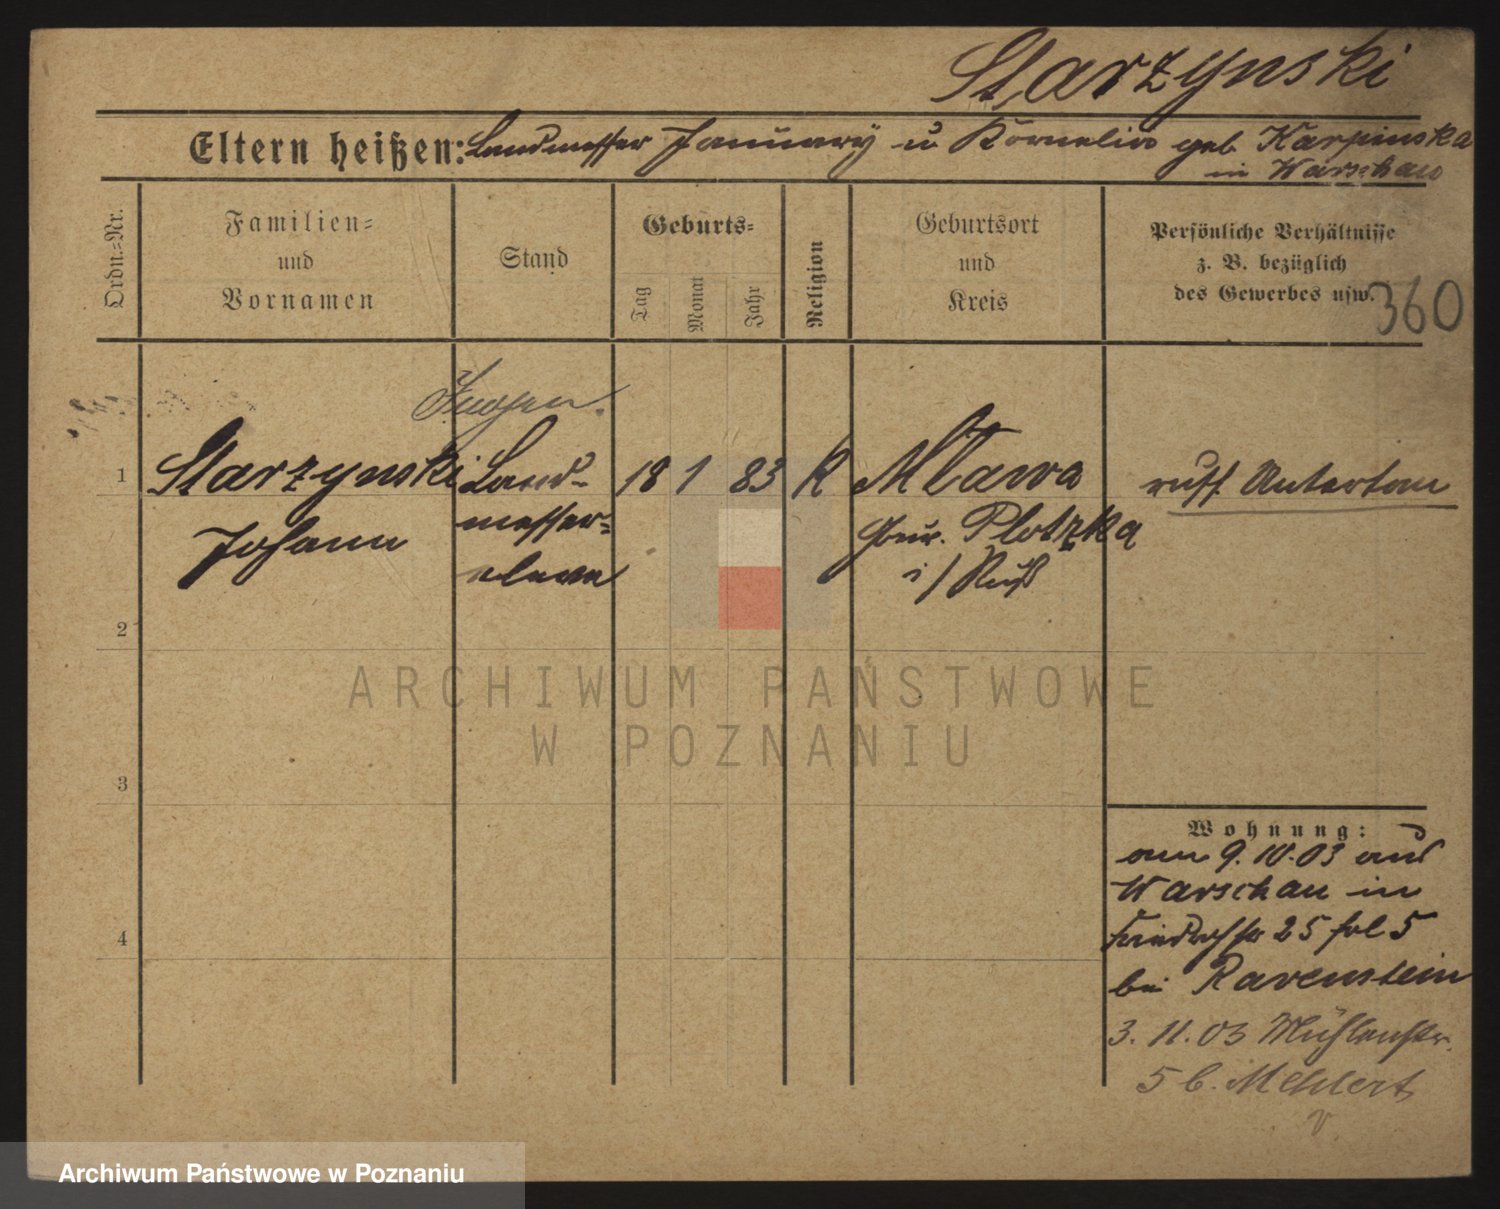 Starzynski
Eltern heißen: Landmesser January u Kornelia geb Karpinska
in Warschau
Ordn.=Nr.
Familien=
und
Vornamen
Stand
Geburts=
Tag
Monat
Jahr
Religion
Geburtsort
und
Kreis
Persönliche Verhältnisse
z. B. bezüglich
des Gewerbes usw.
360
1
Starzynski
Johann
Land-
messer=
eleve
18
1
83
K
Mlawa
Gouv. Plotzka
i/Ruß
russ. Untertan
2
3
4
Wohnung:
am 9.10.03 aus
Warschau in
25 5
bei Ravenstein
3.11.03 Mühlenstr.
5 b. Mehlert
ARCHIWUM PAŃSTWOWE
W POZNANIU
Archiwum Państwowe w Poznaniu